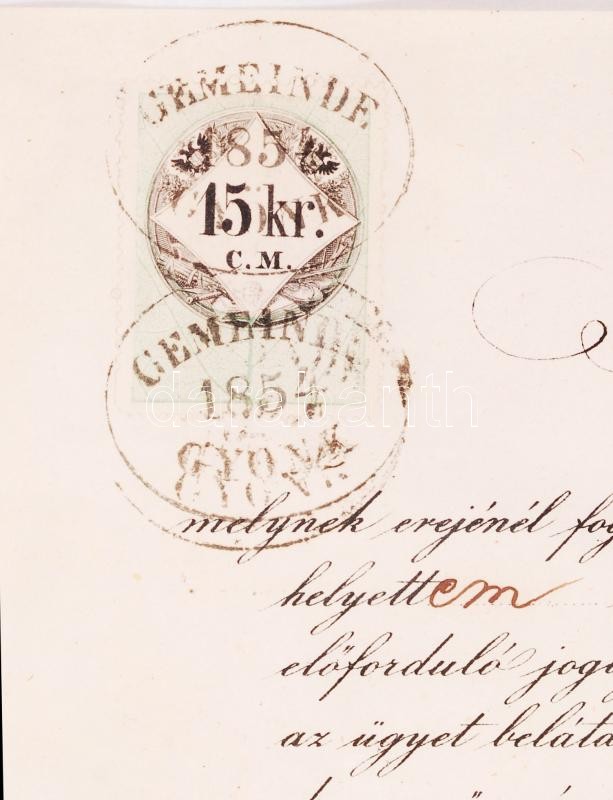 GEMEINDE
185
15 kr.
C.M.
GEMEINDE
1854
GYONK
darabanth
melynek erejénél fog
helyettem
előforduló jogo
az ügyet beláta